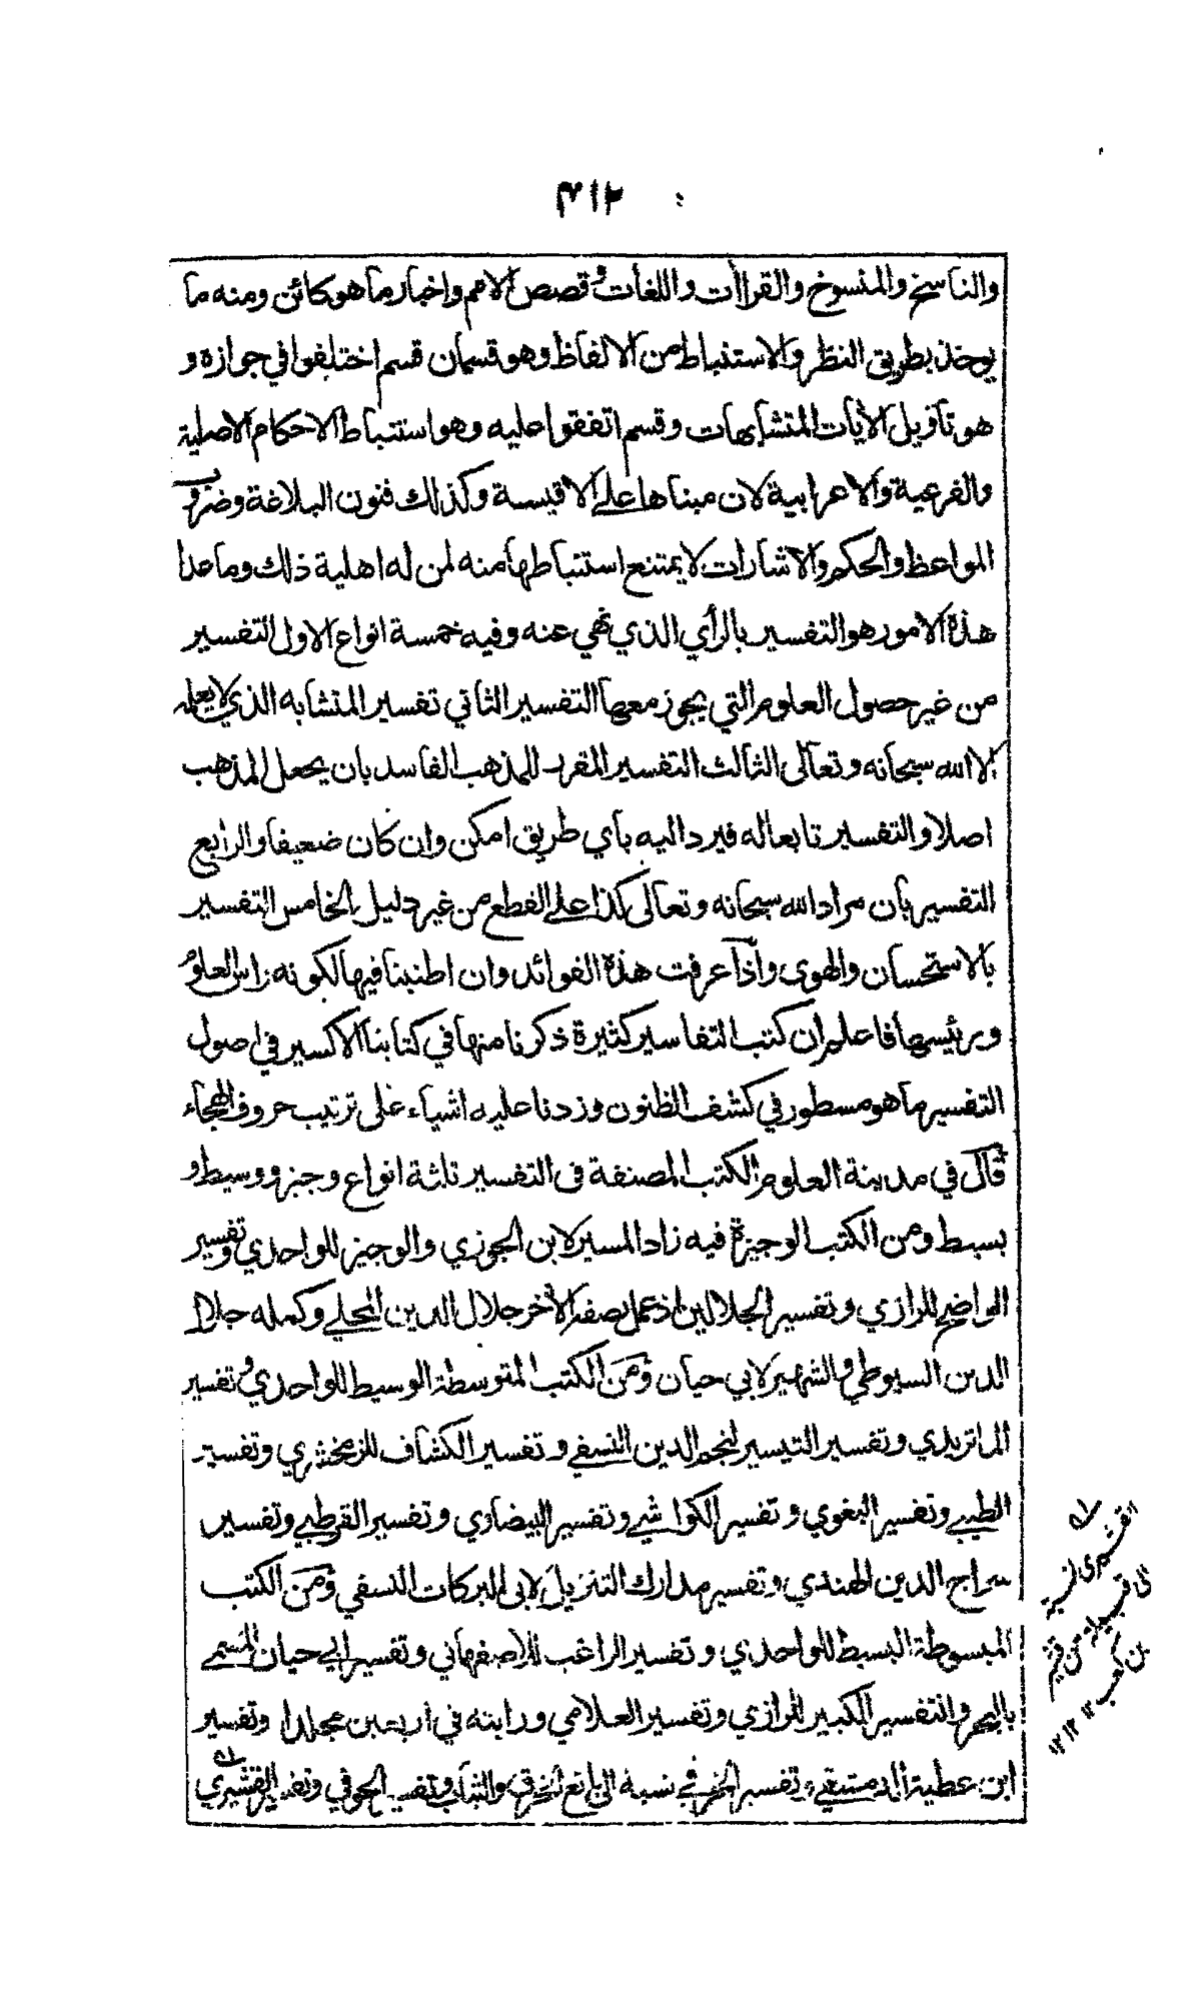 ٣١٢
والناسخ والمنسوخ والقراآت واللغات وقصص الامم واخبار ما هو كائن ومنه ما
يوخذ بطريق النظر والاستنباط من الالفاظ وهو قسمان قسم اختلفوا في جوازه و
هو تاويل الآيات المتشابهات وقسم اتفقوا عليه وهو استنباط الاحكام الاصلية
والفرعية والاعرابية لان مبناها على الاقيسة وكذلك فنون البلاغة وضروب
المواعظ والحكم والاشارات لا يمتنع استنباطها منه لمن له اهلية ذلك وما عدا
هذه الامور هو التفسير بالرأي الذي نهي عنه وفيه خمسة انواع الاول التفسير
من غير حصول العلوم التي يجوز معها التفسير الثاني تفسير المتشابه الذي لا يعلمه
الا الله سبحانه وتعالى الثالث التفسير المقرر للمذهب الفاسد بان يجعل المذهب
اصلا والتفسير تابعا له فيرد اليه بأي طريق امكن وان كان ضعيفا والرابع
التفسير بان مراد الله سبحانه وتعالى كذا على القطع من غير دليل الخامس التفسير
بالاستحسان والهوى واذا عرفت هذه الفوائد وان اطنبنا فيها لكونه راس العلوم
ورئيسها فاعلم ان كتب التفاسير كثيرة ذكرنا منها في كتابنا الاكسير في اصول
التفسير ما هو مسطور في كشف الظنون وزدنا عليه اشياء على ترتيب حروف الهجاء
قال في مدينة العلوم الكتب المصنفة في التفسير ثلثة انواع وجيز ووسيط و
بسيط ومن الكتب الوجيزة فيه زاد المسير لابن الجوزي والوجيز للواحدي وتفسير
الواضح للرازي وتفسير الجلالين اذ عمل نصفه الآخر جلال الدين المحلي وكمله جلال
الدين السيوطي والشهير لابي حيان ومن الكتب المتوسطة الوسيط للواحدي وتفسير
الماتريدي وتفسير التيسير لنجم الدين النسفي وتفسير الكشاف للزمخشري وتفسير
الطيبي وتفسير البغوي وتفسير الكواشي وتفسير البيضاوي وتفسير القرطبي وتفسير
سراج الدين الهندي وتفسير مدارك التنزيل لابي البركات النسفي ومن الكتب
المبسوطة البسيط للواحدي وتفسير الراغب للاصفهاني وتفسير ابي حيان المسمى
بالبحر والتفسير الكبير للرازي وتفسير العلامي ورايته في اربعين مجلدا وتفسير
ابن عطية الدمشقي وتفسير الخرقي نسبة الى بائع الخرق والثياب وتفسير الحوفي وتفسير القشيري
القشيري نسبة
الى قبيلة من قشير
بن كعب ١٢ ١٢